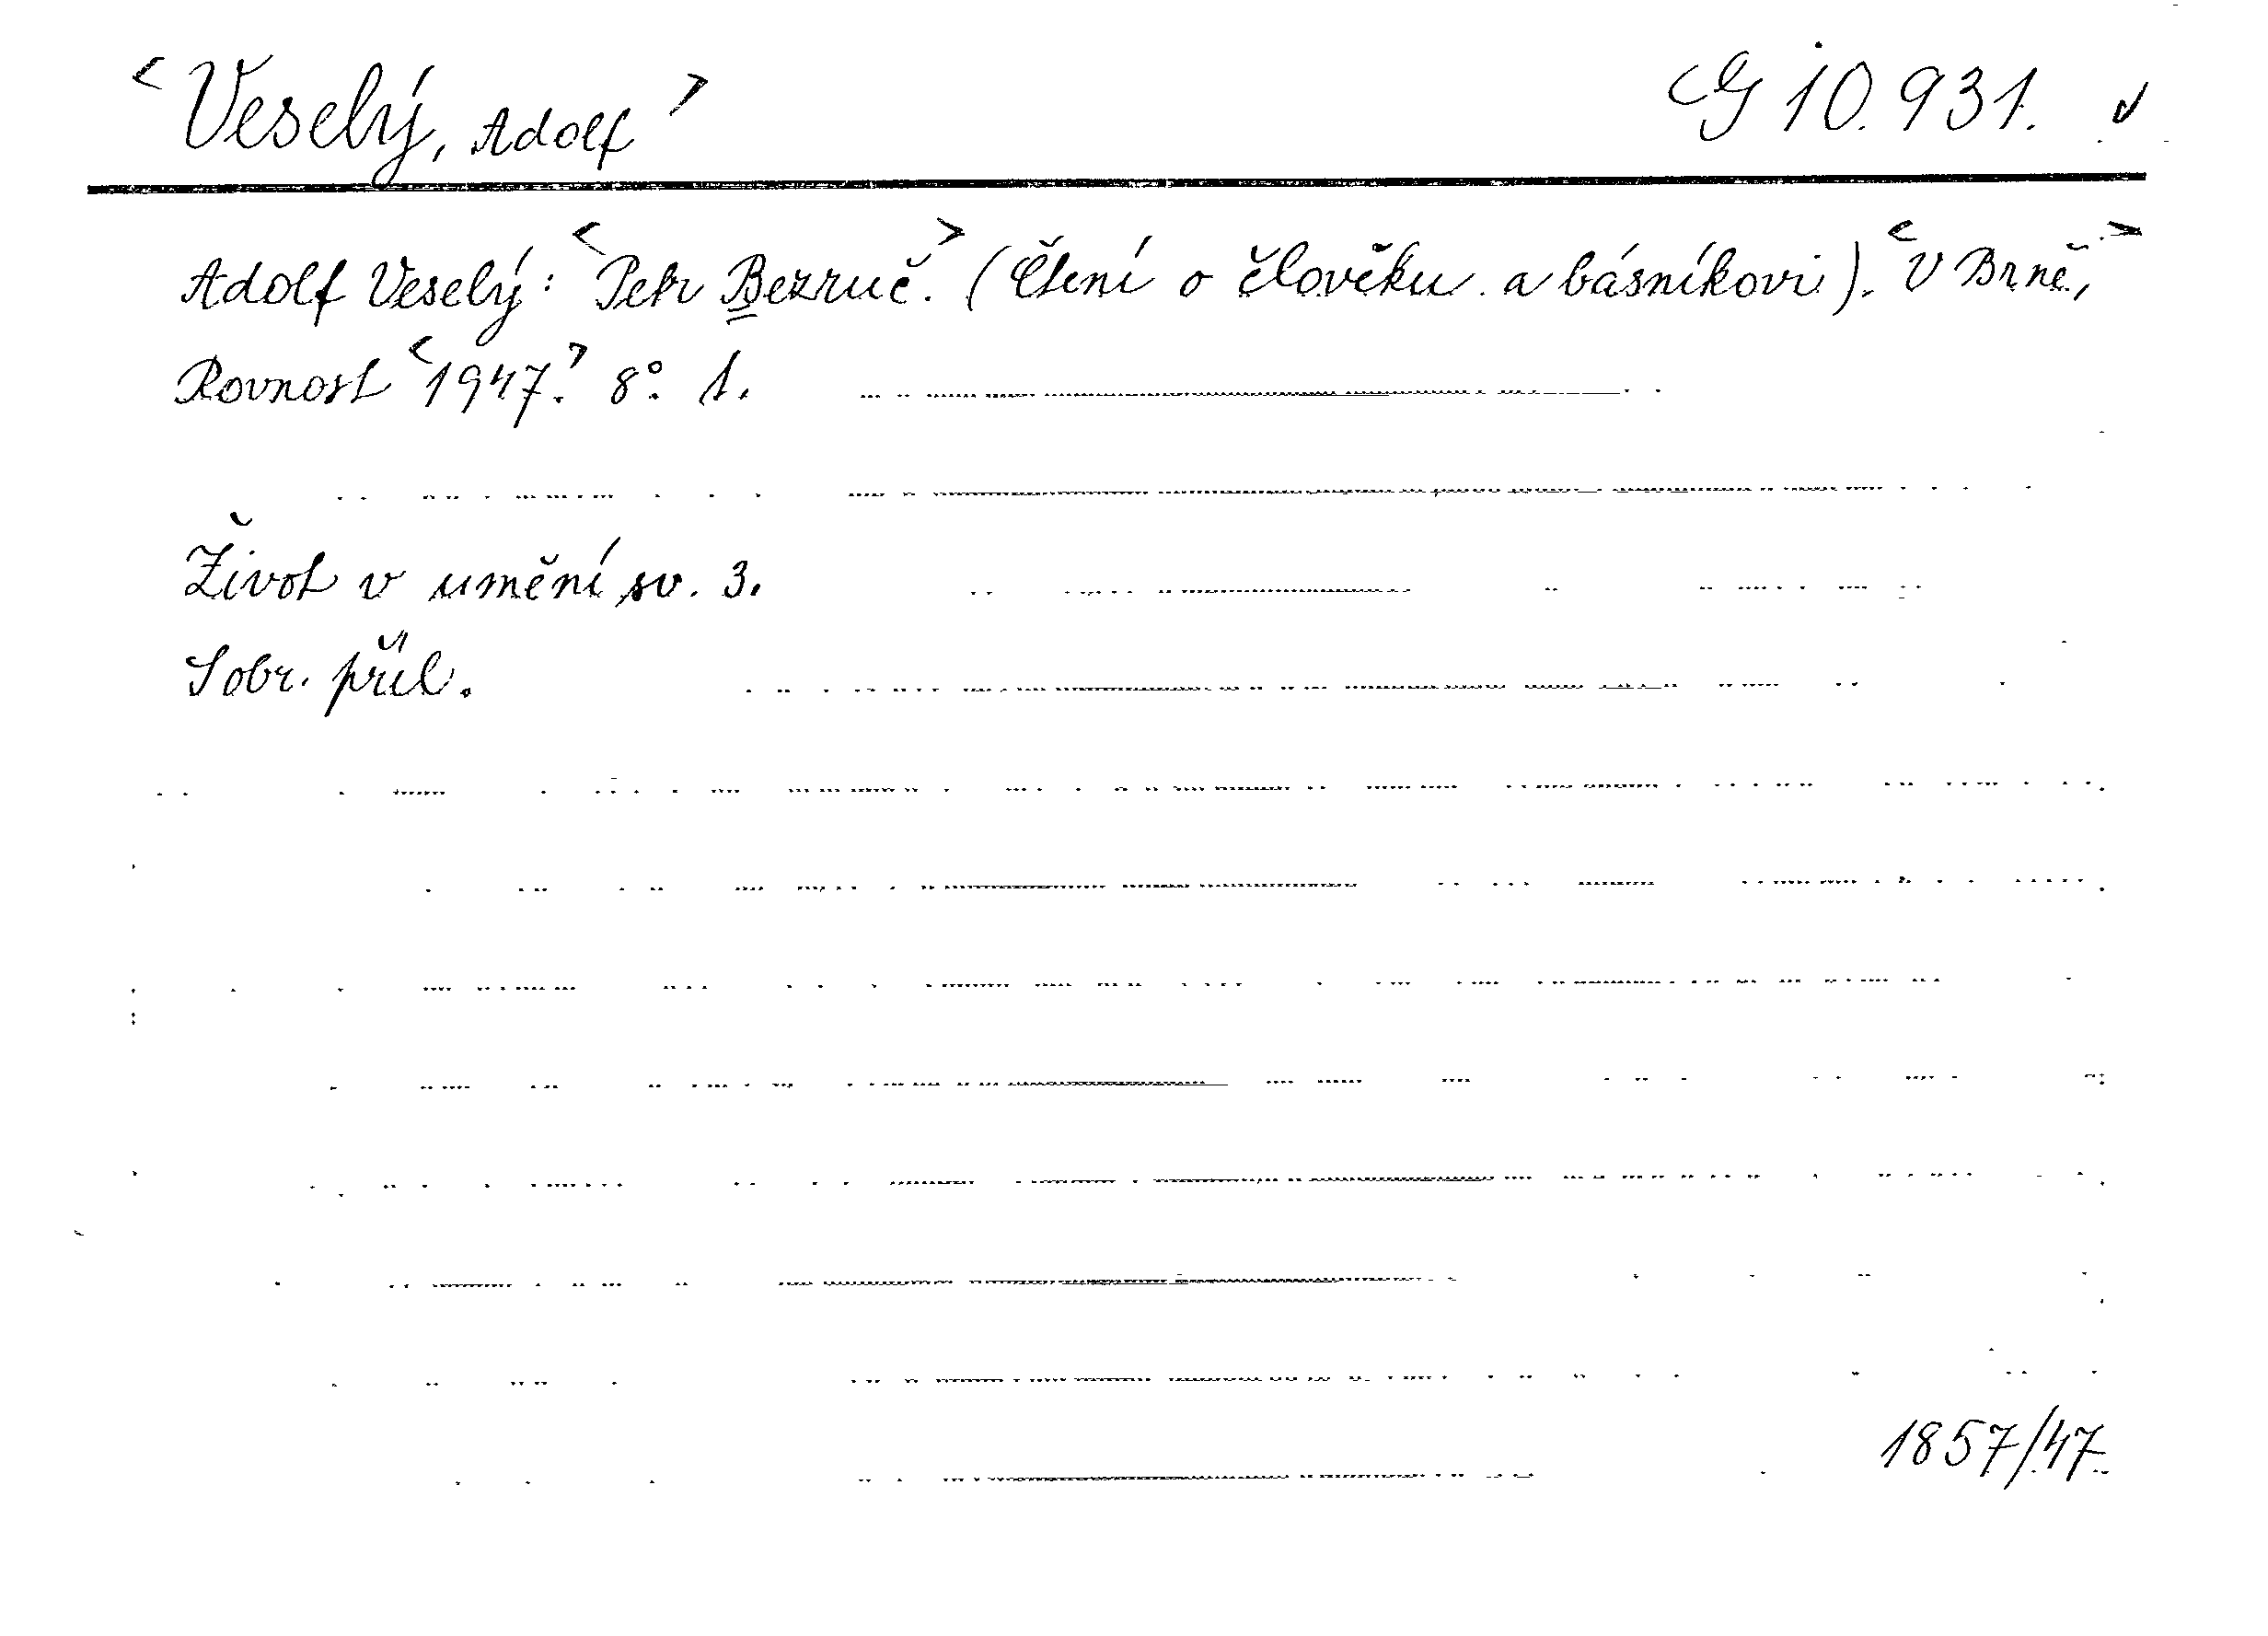 <Veselý, Adolf> G 10.931. ✓
Adolf Veselý: <Petr Bezruč.> (Čtení o člověku a básníkovi). <V Brně,>
Rovnost <1947.> 8°. 1.
Život v umění sv. 3.
Sobr. příl.
1857/47